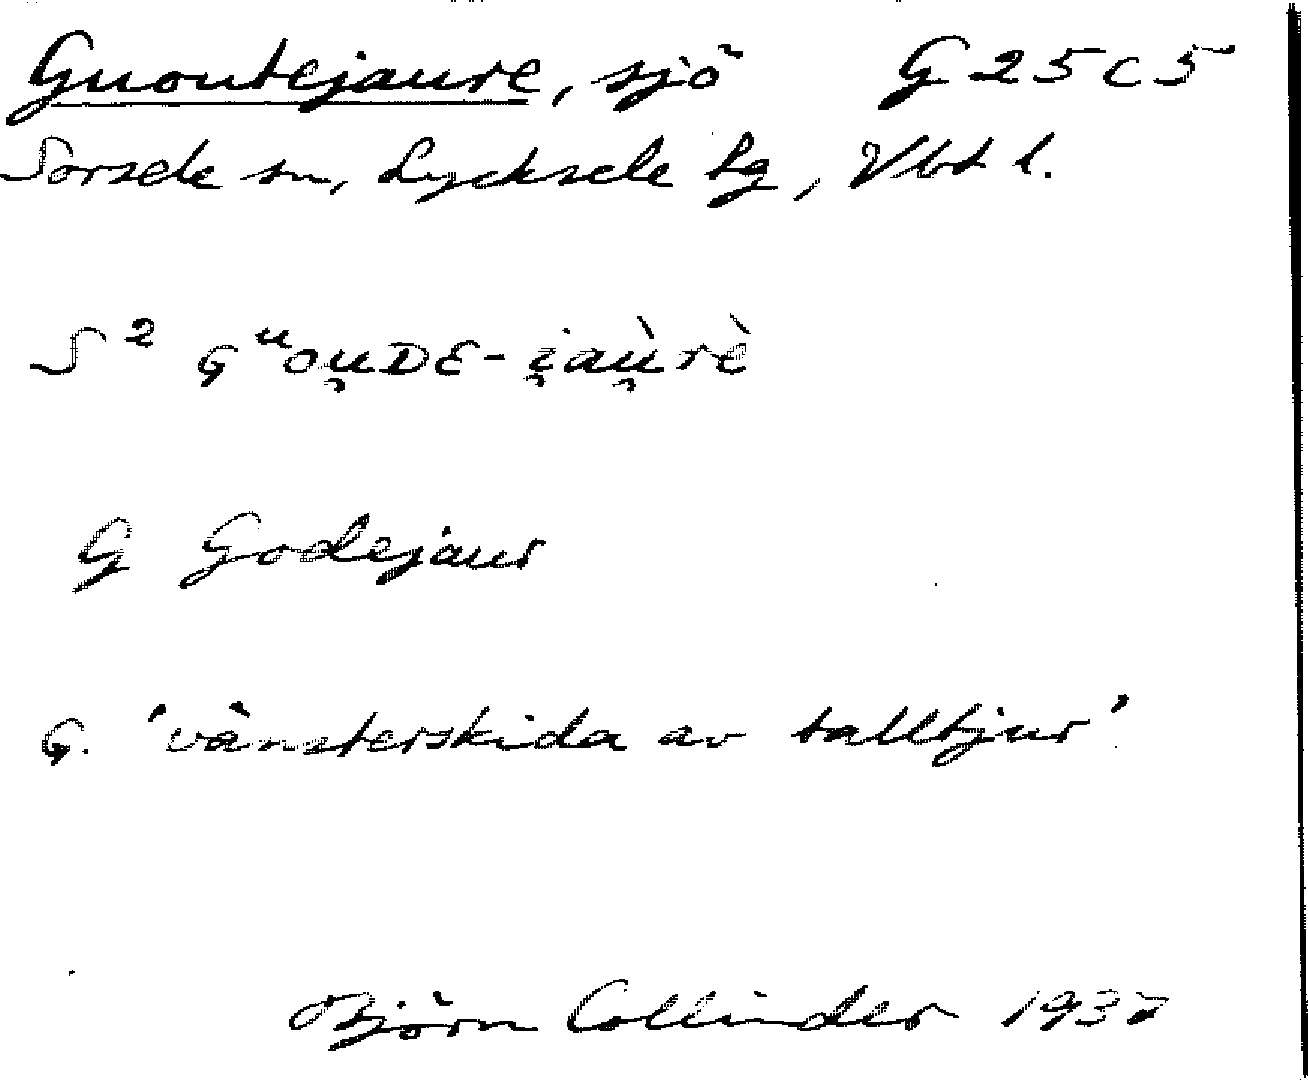 Guoutejaure, sjö G 25 C 5
Sorsele sn, Lycksele lg, Vbt l.
S² GᵘOu̯DE-i̯àu̯rè
G Godejaur
G. 'vänsterskida av talltjur'
Björn Collinder 1937